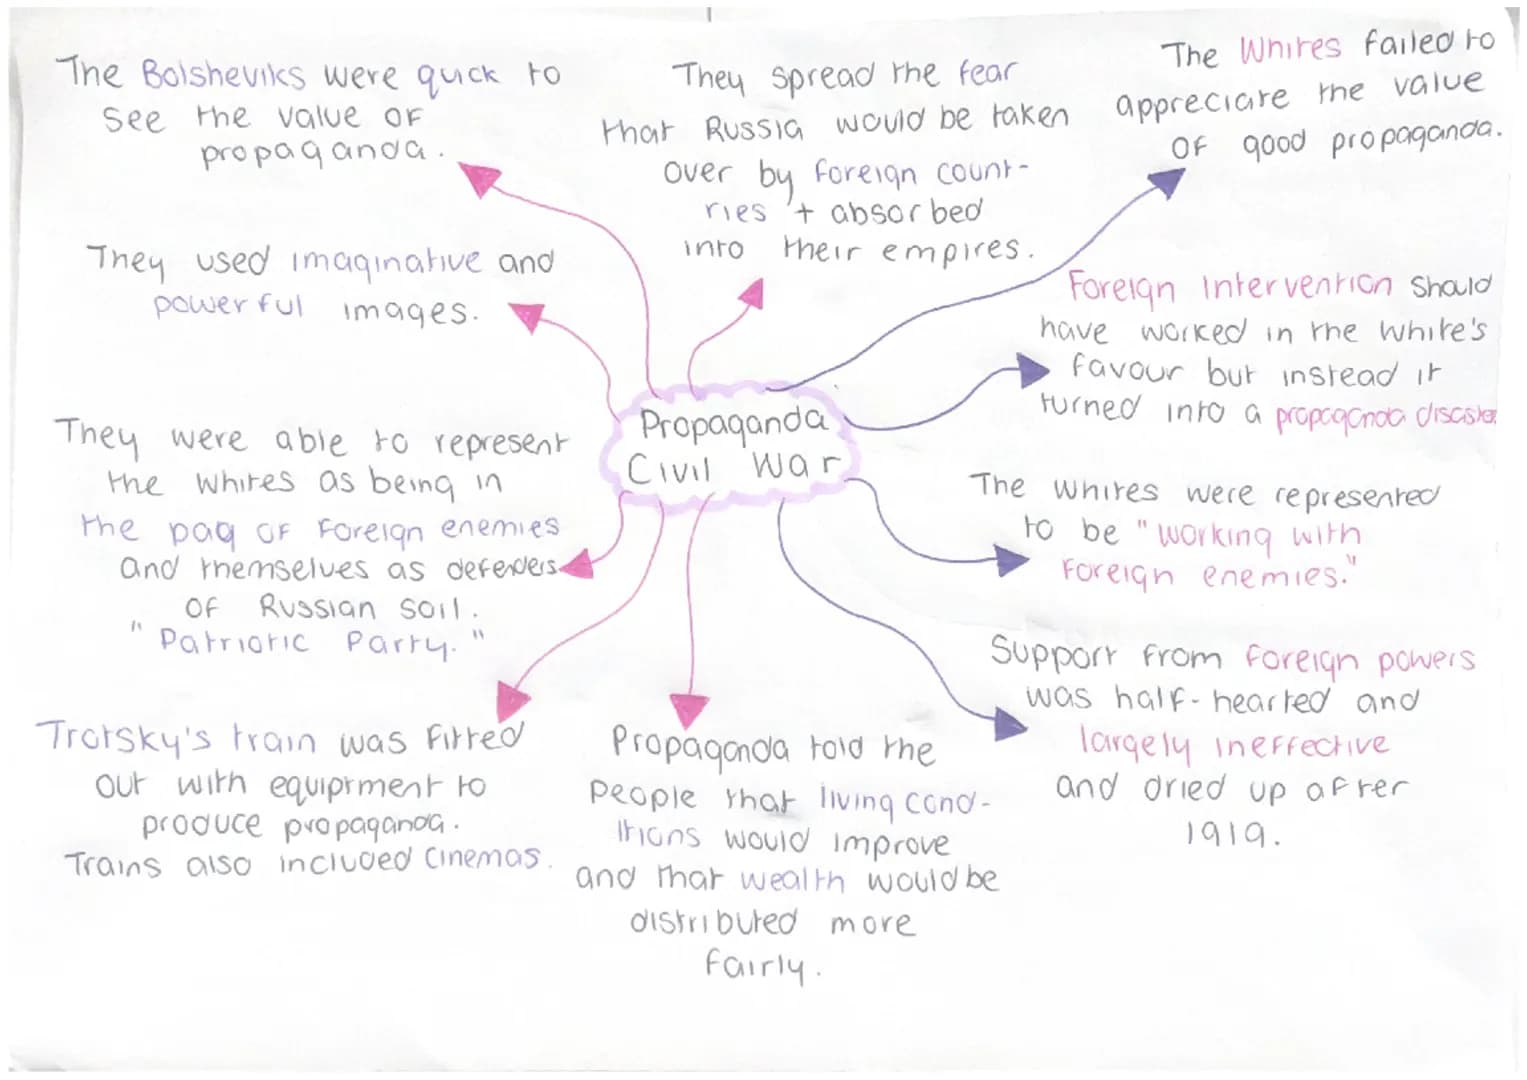 The Bolsheviks were quick to
see the value of
propaganda.
They used imaginative and
powerful images.
They were able to represent
the Whites as being in
the pag of foreign enemies
and themselves as defenders
of Russian soil.
"Patriotic Party."
Trotsky's train was fitted
out with equiprment to
produce propaganda.
Trains also included cinemas.
They spread the fear
that Russia would be taken
over by foreign count-
ries + absorbed
into their empires.
Propaganda
Civil War
Propaganda told the
people that living cond-
itions would improve
and that wealth would be
distributed more
fairly.
The Whites failed to
appreciate the value
of good propaganda.
Foreign Intervention should
have worked in the White's
favour but instead it
turned into a propaganda disaster.
The Whites were represented
to be "working with
foreign enemies."
Support from foreign powers
was half-hearted and
largely ineffective
and dried up after
1919.